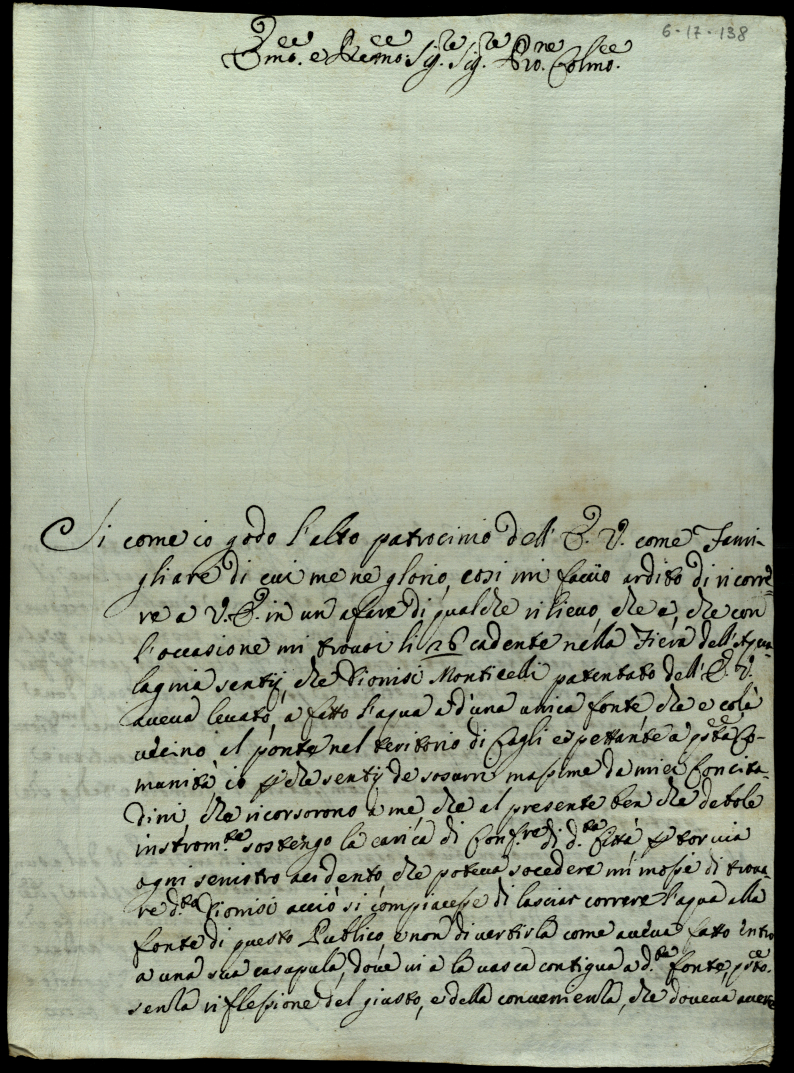 6-17-138
Emo. e Remo: Sig.re Sig.re Pro.ne Colmo.
Si come io godo l'alto patrocinio dell' E. V. come Fami-
gliare di cui me ne glorio, cosi mi faccio ardito di ricorre-
re a V. E. in un afare di qualche rilieuo, che è, che con
l'occasione mi trouai li 26 cadente nella Fiera dell'Aqua
lagnia sentij, che Dionisi Monticelli patentato dell' E. V.
aueua leuato, a fatto l'aqua ad'una unica fonte che e colà
uicino al ponte nel teritorio di Cagli espettante a q.sta Co-
munità io p che sentij de sosurri massime da miei Concita-
dini che ricorsorono a me che al presente ben che debole
instrom.te sostengo la carica di Conf.re di d.ta Città p tor uia
ogni senistro acidente che poteua socedere mi mosse di troua-
re d.to Dionisi acciò si compiacesse di lasciar correre l'aqua alla
fonte di questo Publico, e non diuertirla come aueua fatto intro
a una sua casapula, doue ui a la uasca contigua a d.ta fonte,
senza riflessione del giusto, e della conuenienza, che doueua auere